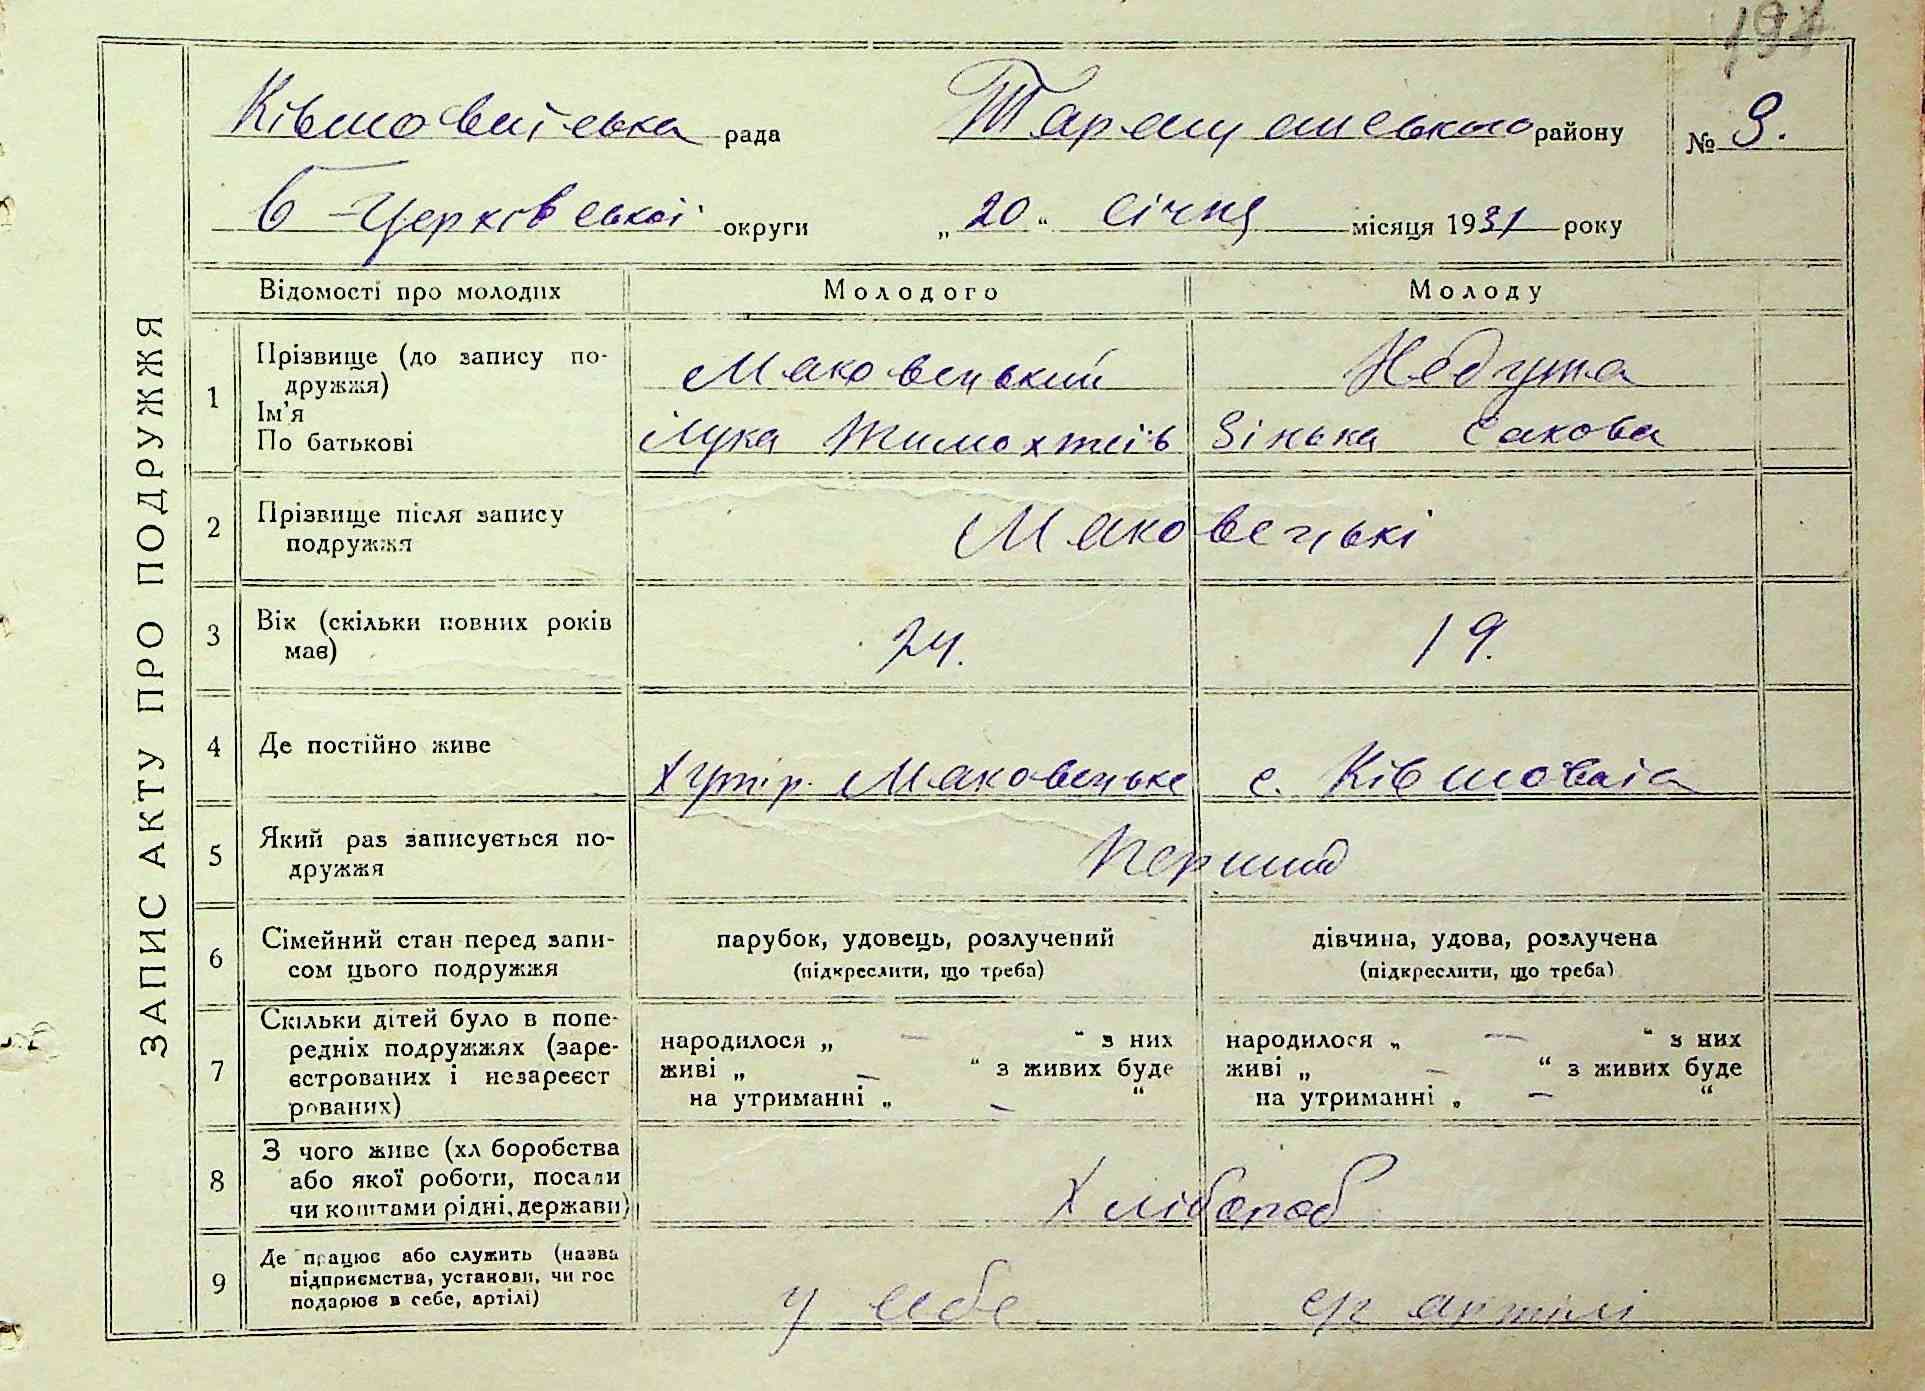 197
Ківшоватська рада Таращанського району № 9.
Б-Церківської округи „20“ січня місяця 1931 року
ЗАПИС АКТУ ПРО ПОДРУЖЖЯ
Відомості про молодих Молодого Молоду
1 Прізвище (до запису по-
дружжя) Маковецький Недужа
Ім'я
По батькові Лука Тимохтеїв Зінька Сакова
2 Прізвище після запису
подружжя Маковецькі
3 Вік (скільки повних років
має) 24. 19.
4 Де постійно живе Хутір. Маковецьке с. Ківшовата
5 Який раз записується по-
дружжя Перший
6 Сімейний стан перед запи- парубок, удовець, розлучений дівчина, удова, розлучена
сом цього подружжя (підкреслити, що треба) (підкреслити, що треба)
7 Скільки дітей було в попе-
редніх подружжях (заре-
єстрованих і незареєст
рованих)
народилося „ — “ з них народилося „ — “ з них
живі „ — “ з живих буде живі „ — “ з живих буде
на утриманні „ — “ на утриманні „ — “
8 З чого живе (хл боробства
або якої роботи, посали
чи коштами рідні, держави) Хлібороб
9 Де працює або служить (назва
підприємства, установи, чи гос
подарює в себе, артілі) у себе артілі